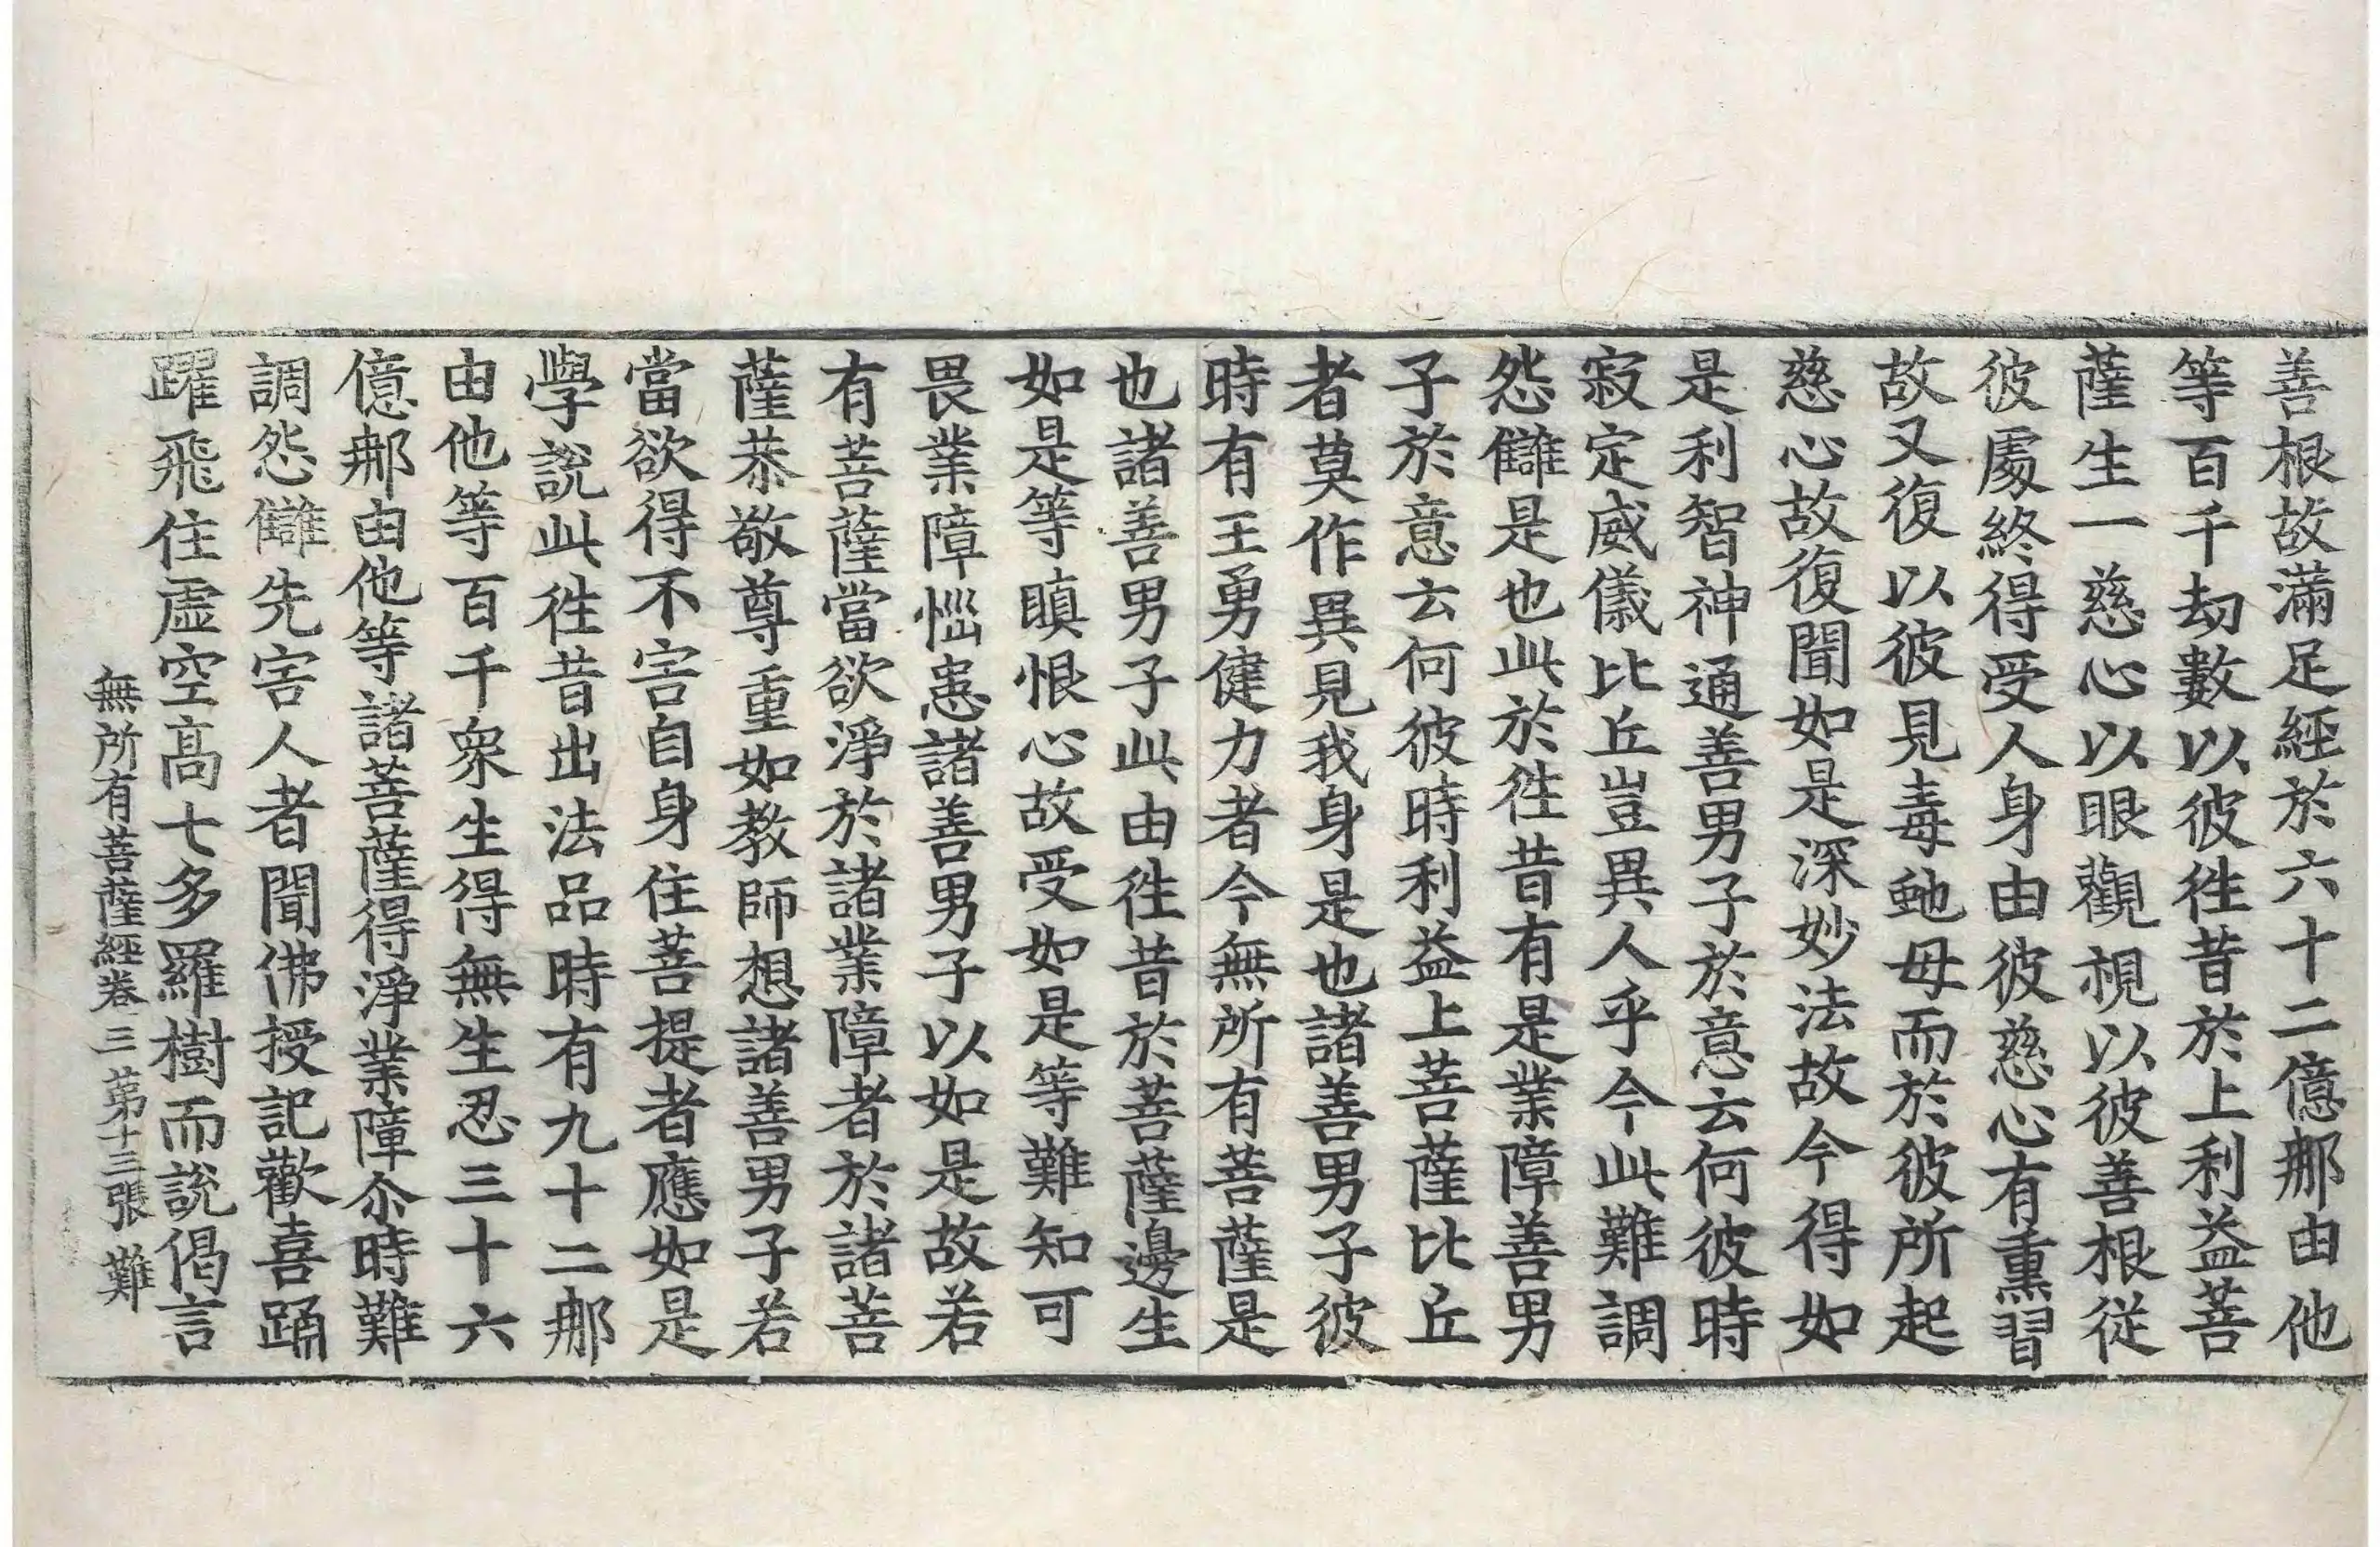 善根故滿足經於六十二億那由他
等百千劫數以彼徃昔於上利益菩
薩生一慈心以眼觀視以彼善根從
彼處終得受人身由彼慈心有熏習
故又復以彼見毒虵母而於彼所起
慈心故復聞如是深妙法故今得如
是利智神通善男子於意云何彼時
寂定威儀比丘豈異人乎今此難調
怨讎是也此於徃昔有是業障善男
子於意云何彼時利益上菩薩比丘
者莫作異見我身是也諸善男子彼
時有王勇健力者今無所有菩薩是
也諸善男子此由徃昔於菩薩邊生
如是等瞋恨心故受如是等難知可
畏業障惱患諸善男子以如是故若
有菩薩當欲淨於諸業障者於諸菩
薩恭敬尊重如教師想諸善男子若
當欲得不害自身住菩提者應如是
學說此徃昔出法品時有九十二那
由他等百千衆生得無生忍三十六
億那由他等諸菩薩得淨業障尒時難
調怨讎先害人者聞佛授記歡喜踊
躍飛住虛空高七多羅樹而說偈言
無所有菩薩經卷三 第十三張 難